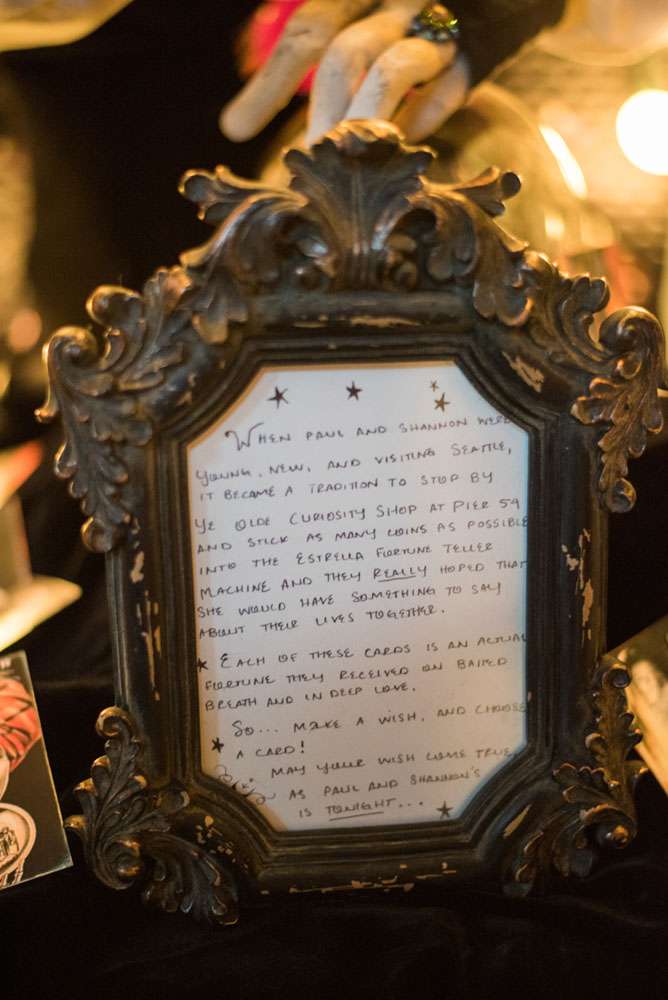 WHEN PAUL AND SHANNON WERE
YOUNG, NEW, AND VISITING SEATTLE,
IT BECAME A TRADITION TO STOP BY
YE OLDE CURIOSITY SHOP AT PIER 54
AND STICK AS MANY COINS AS POSSIBLE
INTO THE ESTRELLA FORTUNE TELLER
MACHINE AND THEY REALLY HOPED THAT
SHE WOULD HAVE SOMETHING TO SAY
ABOUT THEIR LIVES TOGETHER.
EACH OF THESE CARDS IS AN ACTUAL
FORTUNE THEY RECEIVED ON BAITED
BREATH AND IN DEEP LOVE.
SO... MAKE A WISH, AND CHOOSE
A CARD!
MAY YOUR WISH COME TRUE
AS PAUL AND SHANNON'S
IS TONIGHT...